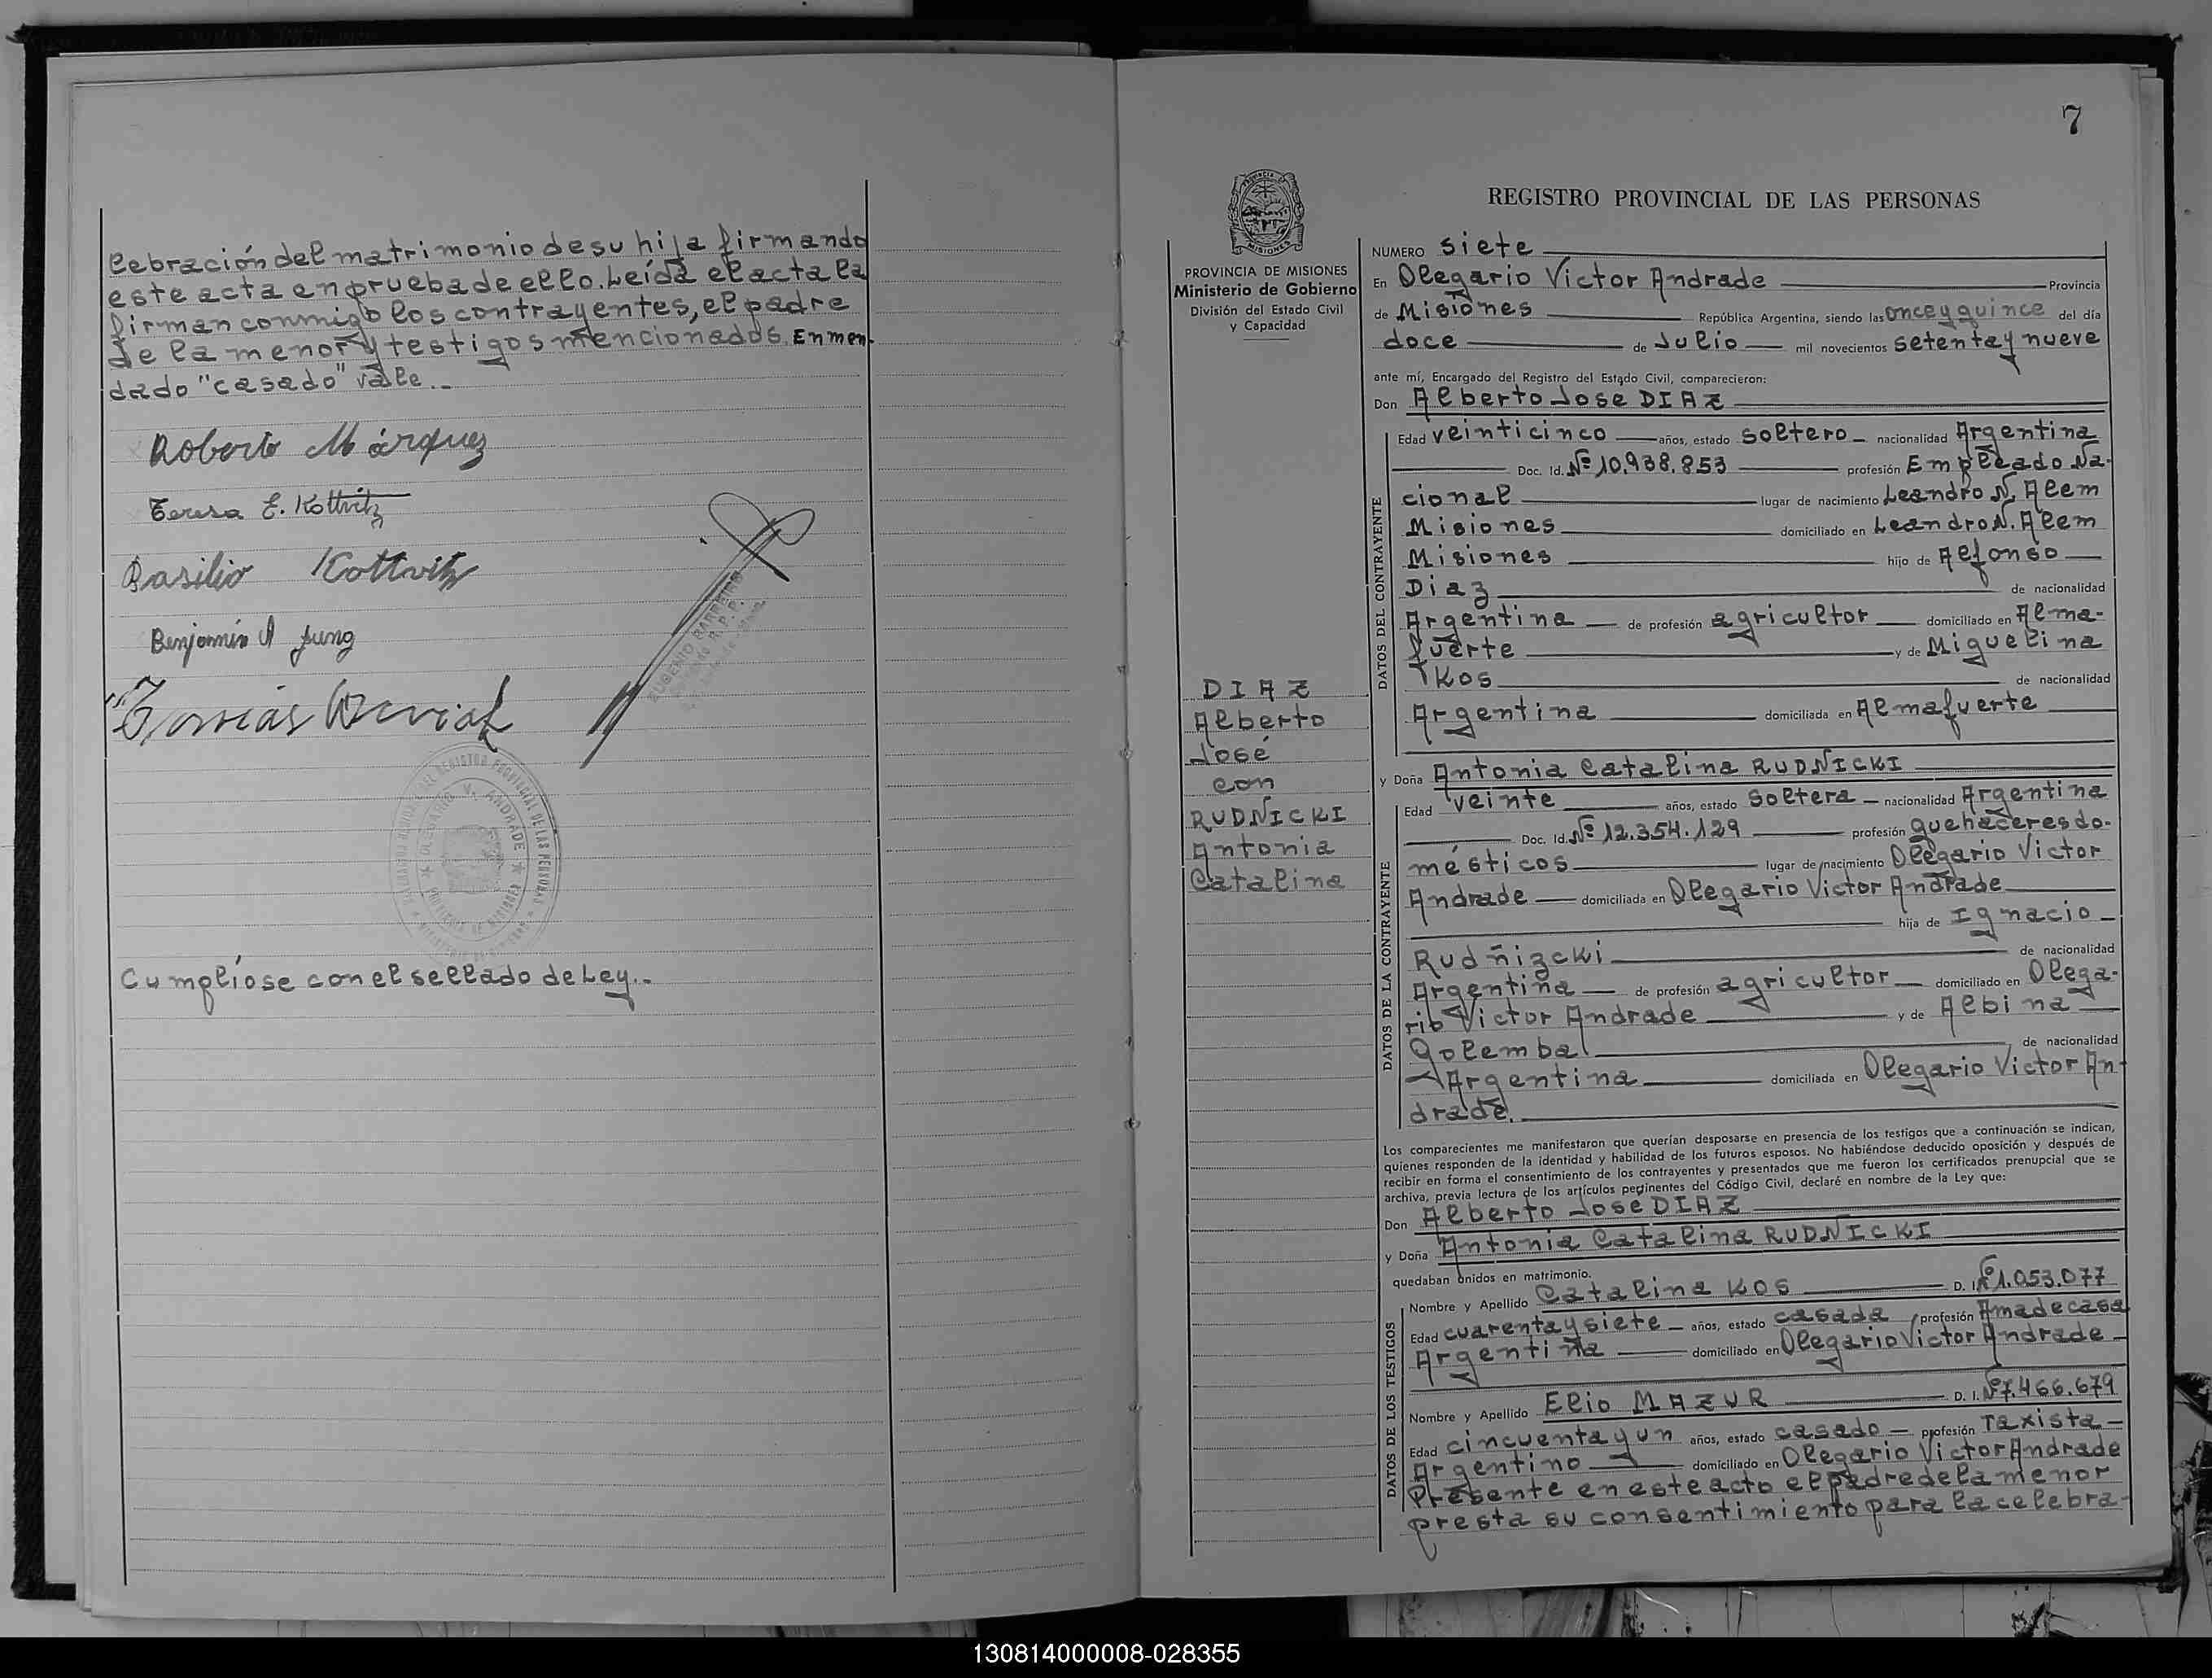 lebración del matrimonio de su hija firmando
este acta en prueba de ello. Leída el acta la
firman conmigo los contrayentes, el padre
de la menor y testigos mencionados. Enmen-
dado "casado" vale.-
Roberto Márquez
Teresa E. Kottvitz
Basilio Kottvitz
Benjamín A Jung
Tomás
EUGENIO BARREIRO
REGISTRO PROVINCIAL DE LAS PERSONAS
OLEGARIO V. ANDRADE
Cumplióse con el sellado de Ley.-
7
PROVINCIA DE MISIONES
Ministerio de Gobierno
División del Estado Civil
y Capacidad
DIAZ
Alberto
José
con
RUDÑICKI
Antonia
Catalina
REGISTRO PROVINCIAL DE LAS PERSONAS
NUMERO siete
En Olegario Victor Andrade Provincia
de Misiones República Argentina, siendo las once y quince del día
doce de Julio mil novecientos setenta y nueve
ante mí, Encargado del Registro del Estado Civil, comparecieron:
Don Alberto Jose DIAZ
DATOS DEL CONTRAYENTE
Edad veinticinco años, estado soltero nacionalidad Argentina
Doc. Id. Nº 10.938.853 profesión Empleado Na-
cional lugar de nacimiento Leandro N. Alem
Misiones domiciliado en Leandro N. Alem
Misiones hijo de Alfonso
Diaz de nacionalidad
Argentina de profesión agricultor domiciliado en Alma-
fuerte y de Miguelina
Kos de nacionalidad
Argentina domiciliada en Almafuerte
y Doña Antonia Catalina RUDÑICKI
DATOS DE LA CONTRAYENTE
Edad veinte años, estado soltera nacionalidad Argentina
Doc. Id. Nº 12.354.129 profesión quehaceres do-
mésticos lugar de nacimiento Olegario Victor
Andrade domiciliada en Olegario Victor Andrade
hija de Ignacio
Rudñizcki de nacionalidad
Argentina de profesión agricultor domiciliado en Olega-
rio Victor Andrade y de Albina
Golemba de nacionalidad
Argentina domiciliada en Olegario Victor An-
drade.
Los comparecientes me manifestaron que querían desposarse en presencia de los testigos que a continuación se indican,
quienes responden de la identidad y habilidad de los futuros esposos. No habiéndose deducido oposición y después de
recibir en forma el consentimiento de los contrayentes y presentados que me fueron los certificados prenupcial que se
archiva, previa lectura de los artículos pertinentes del Código Civil, declaré en nombre de la Ley que:
Don Alberto José DIAZ
y Doña Antonia Catalina RUDÑICKI
quedaban unidos en matrimonio.
DATOS DE LOS TESTIGOS
Nombre y Apellido Catalina Kos D. I. Nº 1.053.077
Edad cuarenta y siete años, estado casada profesión Ama de casa
Argentina domiciliado en Olegario Victor Andrade
Nombre y Apellido Elio MAZUR D. I. Nº 7.466.679
Edad cincuenta y un años, estado casado profesión Taxista
Argentino domiciliado en Olegario Victor Andrade
Presente en este acto el padre de la menor
presta su consentimiento para la celebra-
130814000008-028355